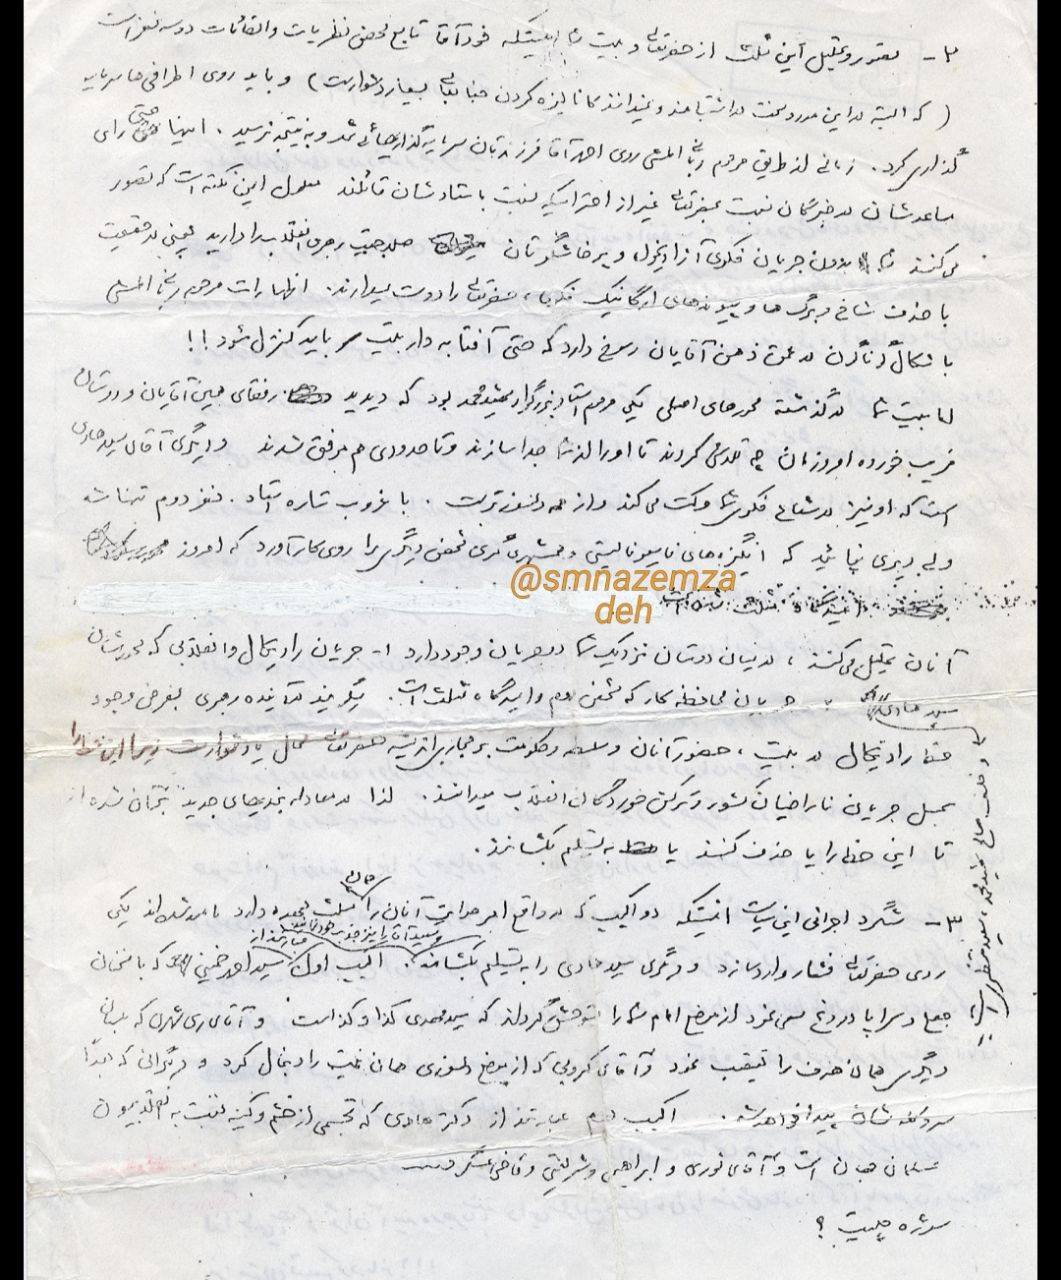 ۲- تصور و تحلیل این مثلث از حضرتعالی و بیت شما اینستکه خود آقا تابع محض نظریات و القائات دو سه نفر است
( که البته در این مورد سخت در اشتباهند و نمیدانند کانالیزه کردن جنابعالی بسیار دشوار است ) و باید روی اطرافی ها سرمایه
گذاری کرد. زمانی از طریق مرحوم ربانی املشی روی احمد آقا فرزندتان سرمایه گذاریهائی شد و به نتیجه نرسید. اینها حتی رای
مساعدشان در خبرگان نسبت به حضرتعالی غیر از احترامیکه نسبت به استادشان قائلند معلول این نکته است که تصور
می کنند شما بدون جریان فکری آزادیخواه و پرخاشگرتان صلاحیت رهبری انقلاب را دارید یعنی در حقیقت
با حذف شاخ و برگ ها و پیوندهای ارگانیک فکری، حضرتعالی را دوست میدارند. اظهارات مرحوم ربانی املشی
با اشکال گوناگون در عمق ذهن آقایان رسوخ دارد که حتی آفتابه دار بیت هم باید کنترل شود !!
اما بیت شما در گذشته محورهای اصلی یکی مرحوم استاد بزرگوار شهید محمد بود که دیدید رفقای همین آقایان و دوستان
فریب خورده امروزمان چه تلاشی کردند تا او را از شما جدا سازند و تا حدودی هم موفق شدند و دیگری آقای سید هادی
است که او نیز در شعاع فکری شما حرکت می کند و از همه دلسوزتر است. با غروب ستاره استاد. نفر دوم تنها شد
ولی دیری نپائید که انگیزه های ناسیونالیستی و همشهری گری شخص دیگری را روی کار آورد که امروز
@smnazemza
deh
آنان تحلیل می کنند، در میان دوستان نزدیک شما دو جریان وجود دارد ۱- جریان رادیکال و انقلابی که محورشان
سید هادی است ۲- جریان محافظه کار که شخص دوم وا دیدگاه مثلث است. میگویند در آینده رهبری بفرض وجود
خط رادیکال در بیت، حضور آنان و سلطه و حکومت بر مجاری اندیشه حضرتعالی محال یا دشوار است زیرا این خط را
سمبل جریان ناراضیان کشور و ترکش خوردگان انقلاب میدانند. لذا در معادله بندیهای جدید تلاش شده از
تا این خط را یا حذف کنند یا به تسلیم بکشانند.
۳- شگرد اجرائی این سیاست اینستکه دو اکیپ که در واقع امر هدایت آنان را همان مثلث بعهده دارد مامور شده اند یکی
روی حضرتعالی فشار وارد سازد و دیگری سید هادی را به تسلیم بکشاند اکیپ اول سید احمد خمینی که با سخنان
جمع و سراپا دروغ سعی نمود از موضع امام شما را متوحش گرداند که سید مهدی کذا و کذا است و آقای ری شهری که بلسان
دیگری همان هدف را تعقیب نمود و آقای کروبی که از موضع دلسوزی همان نیت را دنبال کرد و دیگرانی که بعداً
سر و کله شان پیدا خواهد شد. اکیپ دوم عبارتند از دکتر هادی که تجسمی از خشم و کینه نسبت به انقلابیون
مسلمان جهان است و آقای نوری و ابراهیمی و شریعتی و قاضی عسگر و ...
سوژه چیست ؟